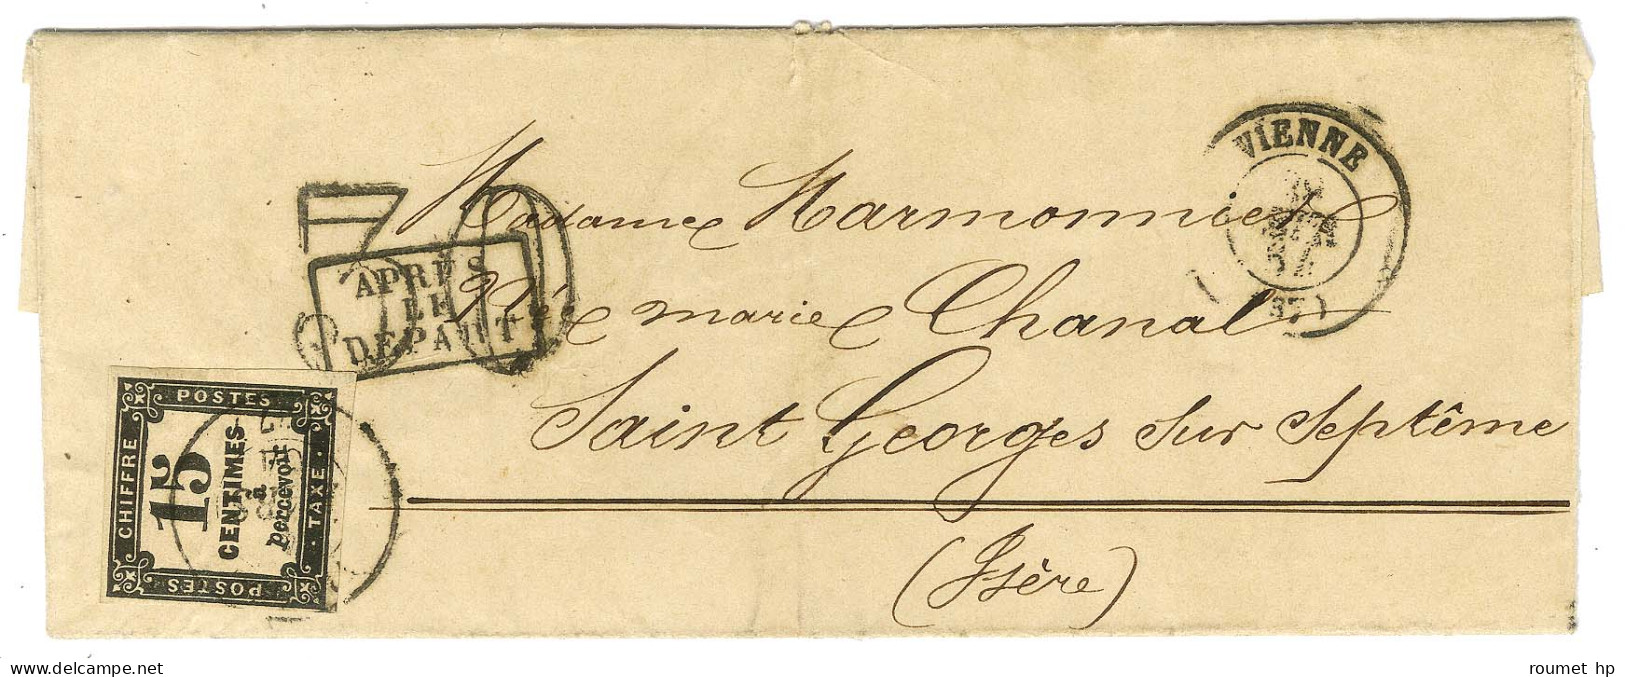 VIENNE
(37)
APRES
LE
DEPART
Madame Marmonnier
Née marie Chanal
Saint Georges sur Septême
(Isère)
POSTES
CHIFFRE
TAXE
POSTES
15
CENTIMES
à
percevoir
http://www.delcampe.net
roumet hp